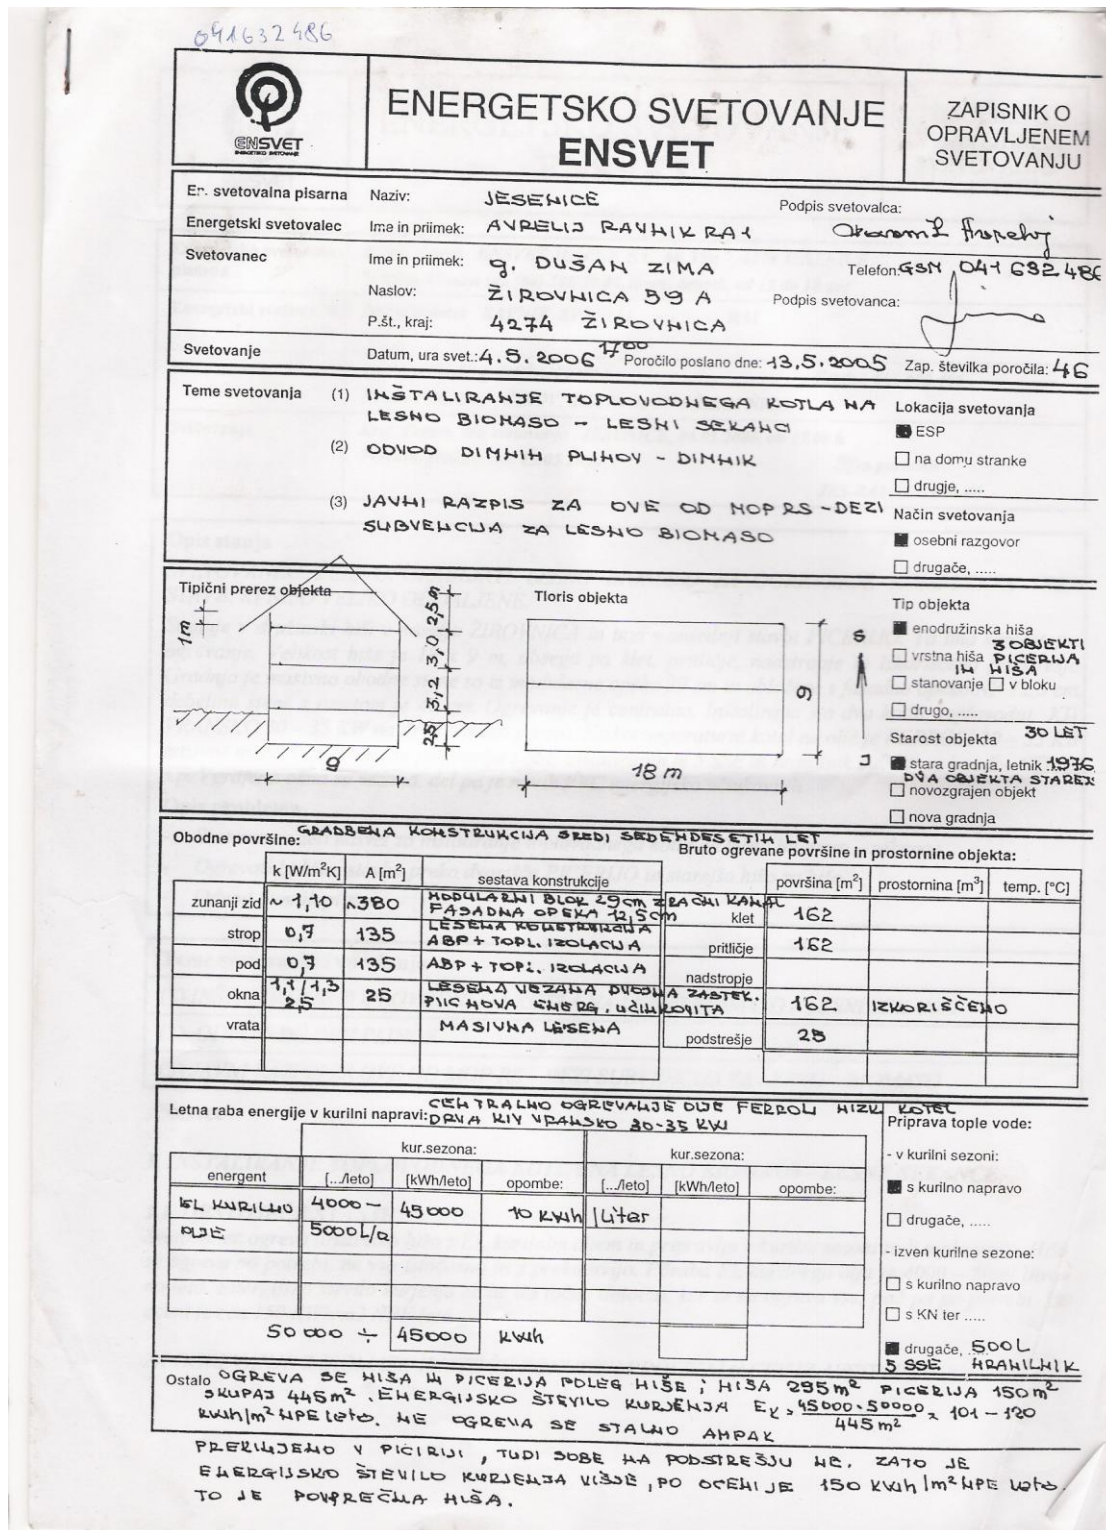 041632486
ENSVET
ENERGETSKO SVETOVANJE
ENERGETSKO SVETOVANJE
ENSVET
ZAPISNIK O
OPRAVLJENEM
SVETOVANJU
En. svetovalna pisarna Naziv: JESENICE Podpis svetovalca:
Energetski svetovalec Ime in priimek: AVRELIJ RAVNIKRAI
Svetovanec Ime in priimek: g. DUŠAN ZIMA Telefon: GSM 041 632 486
Naslov: ŽIROVNICA 59 A Podpis svetovanca:
P.št., kraj: 4274 ŽIROVNICA
Svetovanje Datum, ura svet.: 4.5.2006 1700 Poročilo poslano dne: 13.5.2005 Zap. številka poročila: 46
Teme svetovanja (1) INŠTALIRANJE TOPLOVODNEGA KOTLA NA
LESNO BIOMASO - LESNI SEKANCI
(2) ODVOD DIMNIH PLINOV - DIMNIK
(3) JAVNI RAZPIS ZA OVE OD MOP RS - DEZI
SUBVENCIJA ZA LESNO BIOMASO
Lokacija svetovanja
ESP
na domu stranke
drugje, .....
Način svetovanja
osebni razgovor
drugače, .....
Tipični prerez objekta
1m
2,5m
3,0
3,2
2,5
9
Tloris objekta
9
18 m
S
J
Tip objekta
enodružinska hiša
vrstna hiša 3 OBJEKTI
PICERIJA
IN HIŠA
stanovanje v bloku
drugo, .....
Starost objekta 30 LET
stara gradnja, letnik 1976
DVA OBJEKTA STAREJ
novozgrajen objekt
nova gradnja
Obodne površine: GRADBENA KONSTRUKCIJA SREDI SEDEMDESETIH LET
k [W/m²K] A [m²] sestava konstrukcije
zunanji zid ~ 1,10 ~380 MODULARNI BLOK 29cm ZRAČNI KANAL
FASADNA OPEKA 12,5cm
strop 0,7 135 LESENA KONSTRUKCIJA
ABP + TOPL. IZOLACIJA
pod 0,7 135 ABP + TOPL. IZOLACIJA
okna 1,1/1,3 2,5 25 LESENA VEZANA DVOJNA ZASTEK.
PVC NOVA ENERG. UČINKOVITA
vrata MASIVNA LESENA
Bruto ogrevane površine in prostornine objekta:
površina [m²] prostornina [m³] temp. [°C]
klet 162
pritličje 162
nadstropje
162 IZKORIŠČENO
podstrešje 25
Letna raba energije v kurilni napravi: CENTRALNO OGREVANJE OLJE FERROLI NIZK KOTEL
DRVA KIV VRANSKO 30-35 KW
kur.sezona: kur.sezona:
energent [.../leto] [kWh/leto] opombe: [.../leto] [kWh/leto] opombe:
EL KURILNO 4000 - 45000 10 kWh 1 Liter
OLJE 5000L/a
50000 ÷ 45000 kWh
Priprava tople vode:
- v kurilni sezoni:
s kurilno napravo
drugače, .....
- izven kurilne sezone:
s kurilno napravo
s KN ter .....
drugače, ..... 500L
5 SSE HRANILNIK
Ostalo OGREVA SE HIŠA IN PICERIJA POLEG HIŠE; HIŠA 295m² PICERIJA 150m²
SKUPAJ 445m². ENERGIJSKO ŠTEVILO KURJENJA EK = 45000 - 50000 / 445m² = 101 - 120
kWh/m² NPE leto. NE OGREVA SE STALNO AMPAK
PREKINJENO V PICIRIJI, TUDI SOBE NA PODSTREŠJU NE. ZATO JE
ENERGIJSKO ŠTEVILO KURJENJA VIŠJE, PO OCENI JE 150 kWh/m² NPE leto.
TO JE POVPREČNA HIŠA.